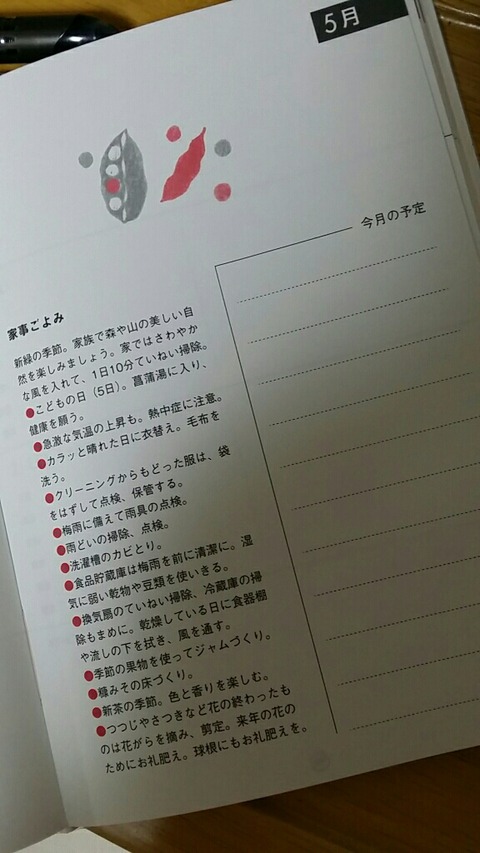 5月
今月の予定
家事ごよみ
新緑の季節。家族で森や山の美しい自
然を楽しみましょう。家ではさわやか
な風を入れて、1日10分ていねい掃除。
●こどもの日（5日）。菖蒲湯に入り、
健康を願う。
●急激な気温の上昇も。熱中症に注意。
●カラッと晴れた日に衣替え。毛布を
洗う。
●クリーニングからもどった服は、袋
をはずして点検、保管する。
●梅雨に備えて雨具の点検。
●雨どいの掃除、点検。
●洗濯槽のカビとり。
●食品貯蔵庫は梅雨を前に清潔に。湿
気に弱い乾物や豆類を使いきる。
●換気扇のていねい掃除、冷蔵庫の掃
除もまめに。乾燥している日に食器棚
や流しの下を拭き、風を通す。
●季節の果物を使ってジャムづくり。
●糠みその床づくり。
●新茶の季節。色と香りを楽しむ。
●つつじやさつきなど花の終わったも
のは花がらを摘み、剪定。来年の花の
ためにお礼肥え。球根にもお礼肥えを。